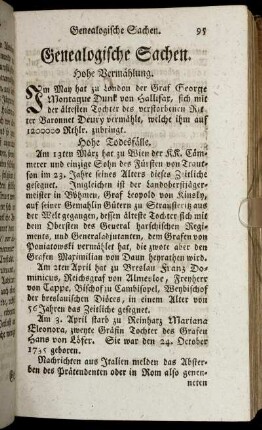 Genealogische Sachen. 95
Genealogische Sachen.
Hohe Vermählung.
Im May hat zu London der Graf George
Montague Dunk von Hallifax, sich mit
der ältesten Tochter des verstorbenen Rit
ter Baronnet Drury vermählt, welche ihm auf
1200000 Rthlr. zubringt.
Hohe Todesfälle.
Am 13ten März hat zu Wien der K.K. Cäm
merer und einzige Sohn des Fürsten von Traut-
son im 23. Jahre seines Alters dieses Zeitliche
gesegnet. Ingleichen ist der Landoberstjäger-
meister in Böhmen, Graf Leopold von Kinsky,
auf seiner Gemahlin Gütern zu aus
der Welt gegangen, dessen älteste Tochter sich mit
dem Obersten des General harschischen Regi-
ments, und Generaladjutanten, dem Grafen von
Poniatowski vermählet hat, die zwote aber den
Grafen Maximilian von Daun heyrathen wird.
Am 2ten April hat zu Breslau Franz Do-
minicus, Reichsgraf von Almesloe, Freyherr
von Tappe, Bischof zu Cambisopel, Weybischof
der breslauischen Diöces, in einem Alter von
56 Jahren das Zeitliche gesegnet.
Am 3. April starb zu Reinharz Mariana
Eleonora, zweyte Gräfin Tochter des Grafen
Hans von Löser. Sie war den 24. October
1735 geboren.
Nachrichten aus Italien melden das Abster-
ben des Prätendenten oder in Rom also genen-
neten